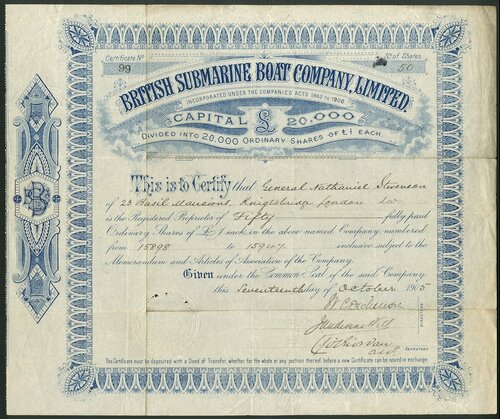 Certificate No. No. of Shares.
99 50
BRITISH SUBMARINE BOAT COMPANY, LIMITED.
INCORPORATED UNDER THE COMPANIES ACTS 1862 TO 1900.
CAPITAL £ 20,000
DIVIDED INTO 20,000 ORDINARY SHARES OF £1 EACH.
This is to Certify that General Nathaniel Stevenson
of 23 Basil Mansions, Knightsbridge London SW
is the Registered Proprietor of Fifty fully paid
Ordinary Shares of £1 each in the above named Company, numbered
from 15898 to 15947 inclusive, subject to the
Memorandum and Articles of Association of the Company.
Given under the Common Seal of the said Company,
this Seventeenth day of October 1905
DIRECTORS
SECRETARY
This Certificate must be deposited with a Deed of Transfer, whether for the whole or any portion thereof, before a new Certificate can be issued in exchange.